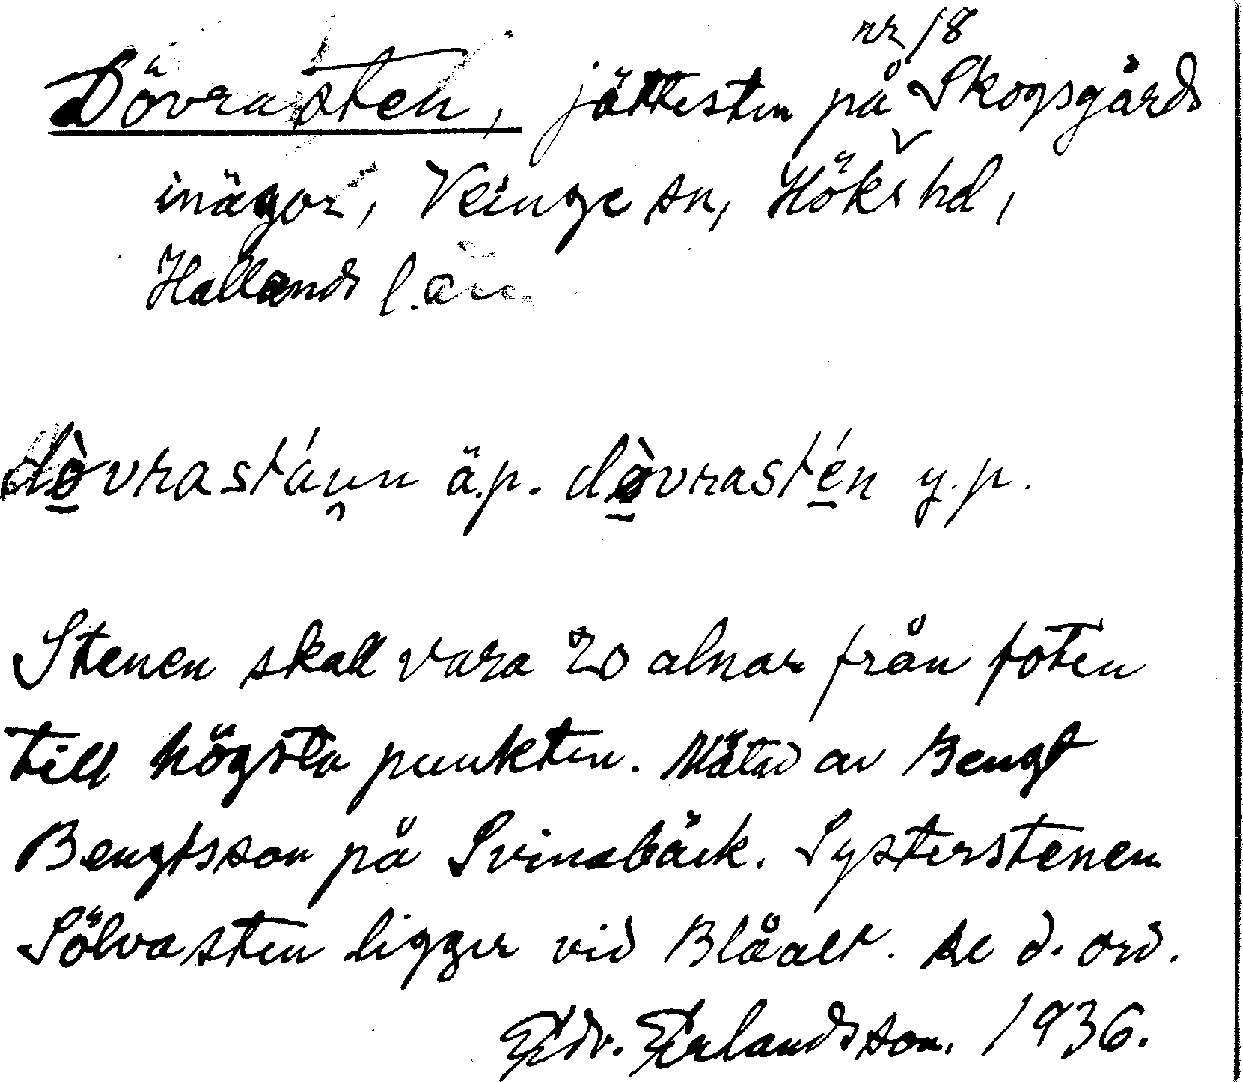 Dövrasten, jättesten på nr 18 Skogsgårds
inägor, Veinge sn, Höks hd,
Hallands län
dòvrastáu̯n ä.p. dòvrastén y.p.
Stenen skall vara 20 alnar från foten
till högsta punkten. Mätad av Bengt
Bengtsson på Svinabäck. Systerstenen
Sölvasten ligger vid Blåalt. Se d. ord.
Edv. Erlandsson. 1936.